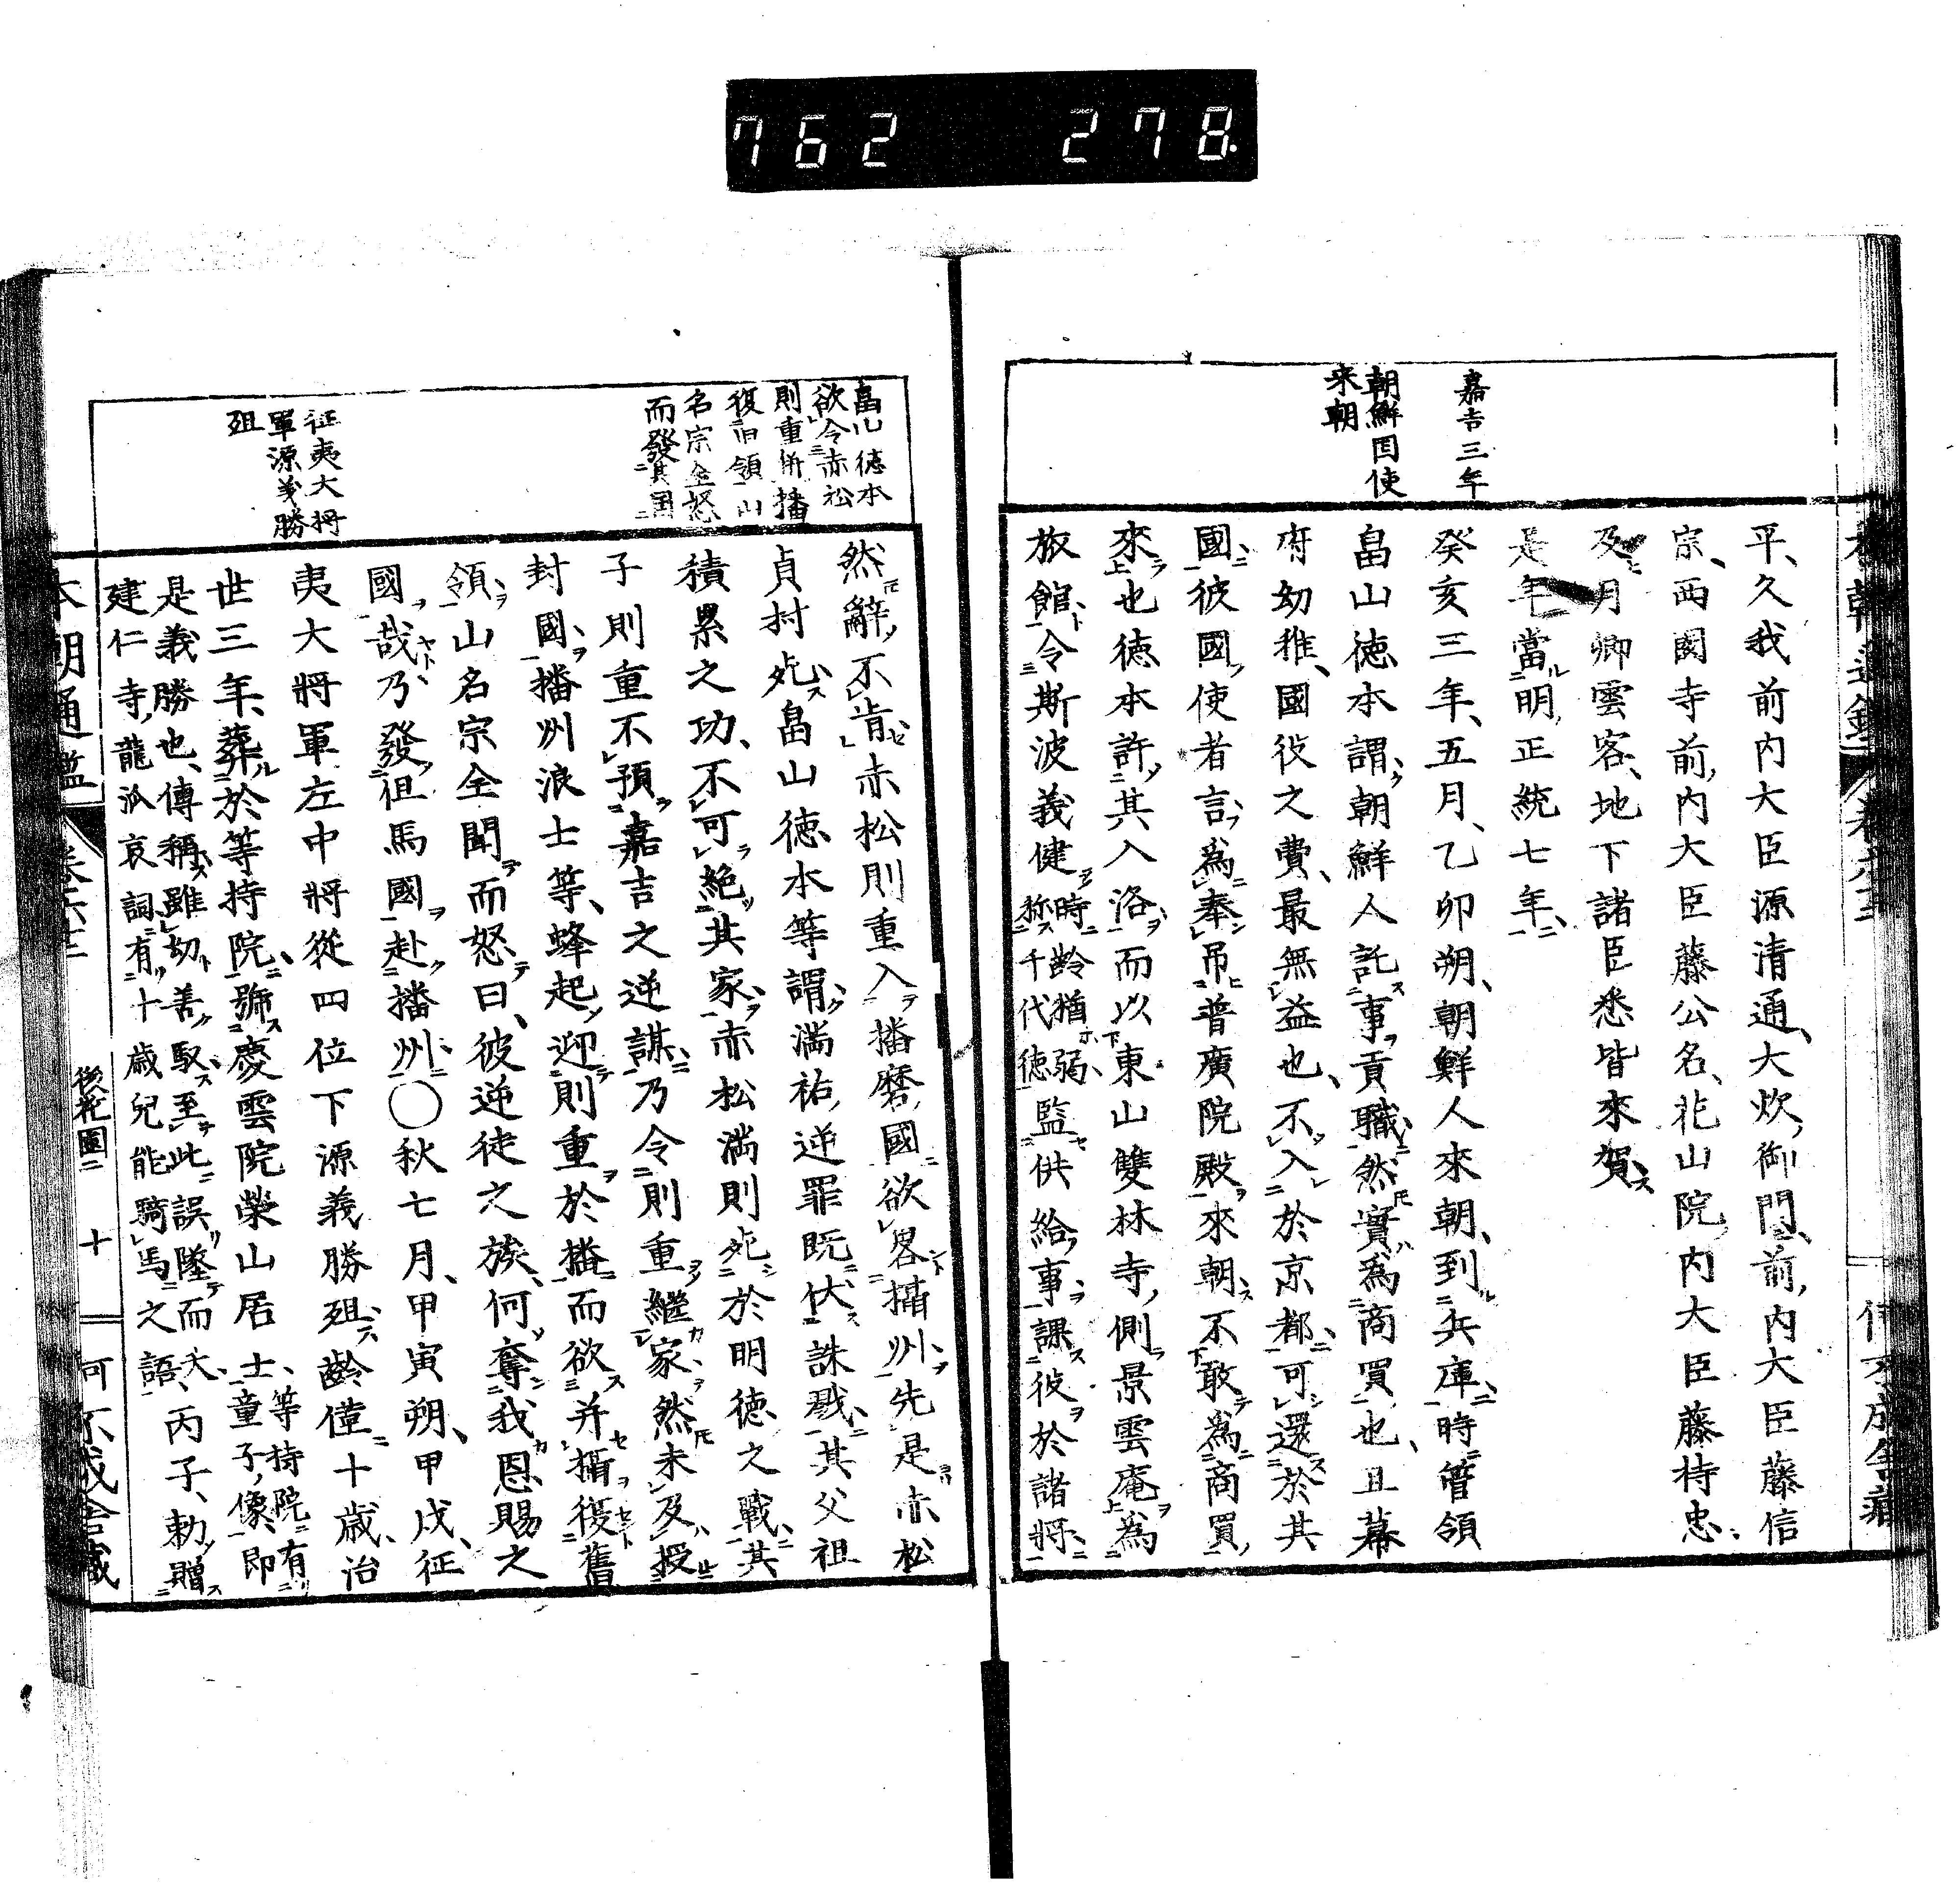 762 278
嘉吉三年
朝鮮国使
来朝
平、久我前内大臣源清通、大炊御門、前内大臣藤信
宗、西園寺前内大臣藤公名、花山院、内大臣藤持忠、
及月卿雲客、地下諸臣悉皆來賀
是年當明正統七年、
癸亥三年、五月、乙卯朔、朝鮮人來朝、到兵庫、時管領
畠山徳本謂、朝鮮人託事貢職、然實爲商買也、且幕
府幼稚、國役之費、最無益也、不入於京都、可還於其
國、彼國使者言、爲奉吊普廣院殿、來朝、不敢爲商買、
來也、徳本許其入洛、而以東山雙林寺側景雲庵爲
旅館、令斯波義健時齡猶弱、称千代徳監供給事、課彼於諸將、
畠山徳本
欲令赤松
則重併播
復旧領山
名宗全怒
而發其国
征夷大將
軍源義勝
殂
然辭不肯、赤松則重入播磨國、欲畧攝州、先是赤松
貞村死、畠山徳本等謂、満祐逆罪既伏誅戮、其父祖
積累之功、不可絶其家、赤松満則死於明徳之戰、其
子則重不預嘉吉之逆謀、乃令則重繼家、然未及授
封國、播州浪士等、蜂起迎則重於播、而欲并攝復舊
領、山名宗全聞而怒曰、彼逆徒之族、何奪我恩賜之
國哉、乃發徂馬國赴播州、〇秋七月、甲寅朔、甲戌、征
夷大將軍左中將從四位下源義勝殂、齢僅十歳、治
世三年、葬於等持院、號慶雲院榮山居士、等持院有童子像、即
是義勝也、傳稱雖幼善馭、至此誤墜而夭、丙子、勅贈
建仁寺龍派哀詞有十歳兒能騎馬之語、
本朝通鑑 卷六十二 後花園二 十